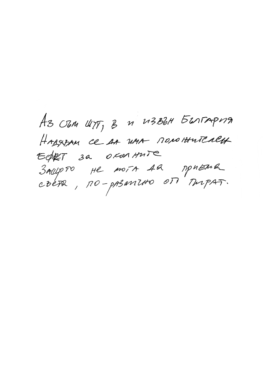 Аз съм щп, в и извън България
Надявам се да има положителен
ефект за околните
Защото не мога да приема
света, по-различно от пират.